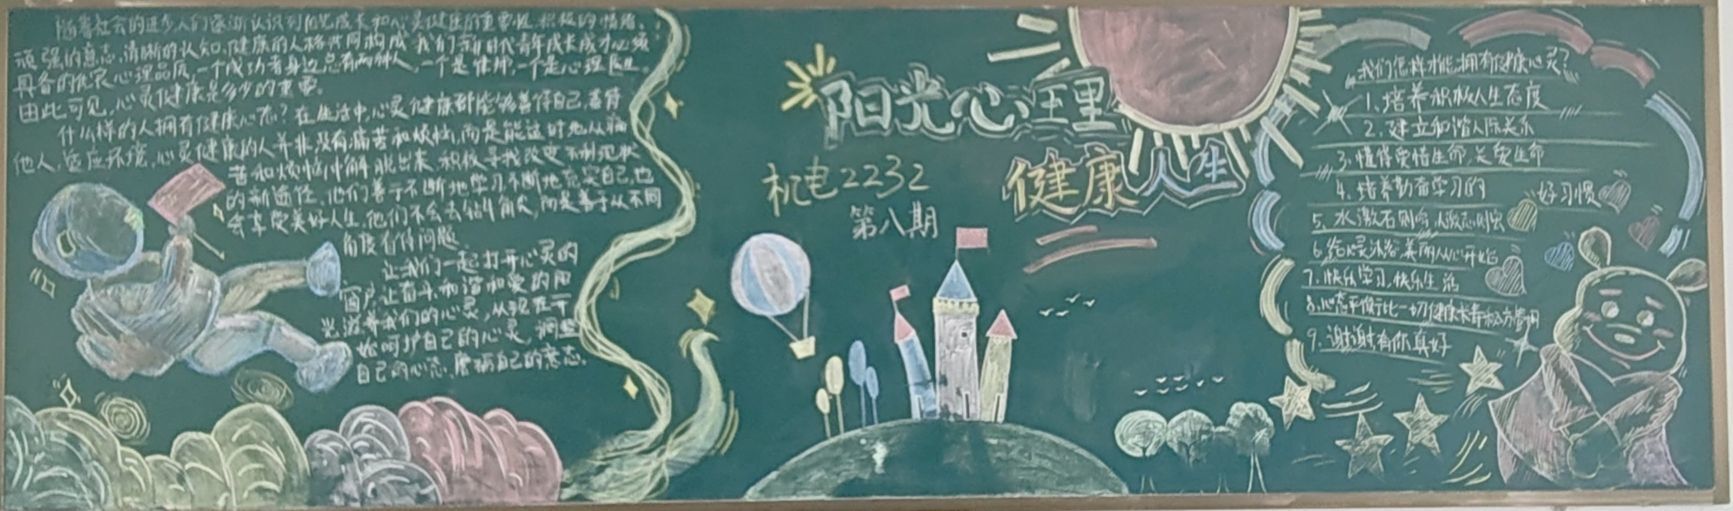 随着社会的进步人们逐渐认识到自己成长和心灵健康的重要性,积极的情绪、
顽强的意志,清晰的认知,健康的人格共同构成我们新时代青年成长成才必须
具备的优良心理品质,一个成功者身边总有两种人,一个是律师,一个是心理医生。
因此可见,心灵健康是多少的重要。
什么样的人拥有健康心态?在生活中,心灵健康都能够善待自己,善待
他人,适应环境,心灵健康的人并非没有痛苦和烦恼,而是能适时地从痛
苦和烦恼中解脱出来,积极寻找改变不利现状
的新途径,他们善于不断地学习不断地充实自己,也
会享受美好人生,他们不会去钻牛角尖,而是善于从不同
角度看待问题。
让我们一起打开心灵的
窗户,让奋斗和谐和爱的阳
光滋养我们的心灵,从现在开
始呵护自己的心灵,调整
自己的心态,磨砺自己的意志。
阳光心理
健康人生
机电2232
第八期
我们怎样才能拥有健康心灵?
1.培养积极人生态度
2.建立和谐人际关系
3.懂得爱惜生命,关爱生命
4.培养勤奋学习的 好习惯
5.水激石则鸣,人激志则宏
6.给心灵沐浴,美丽从心开始
7.快乐学习,快乐生活
8.心态平衡
9.谢谢有你真好